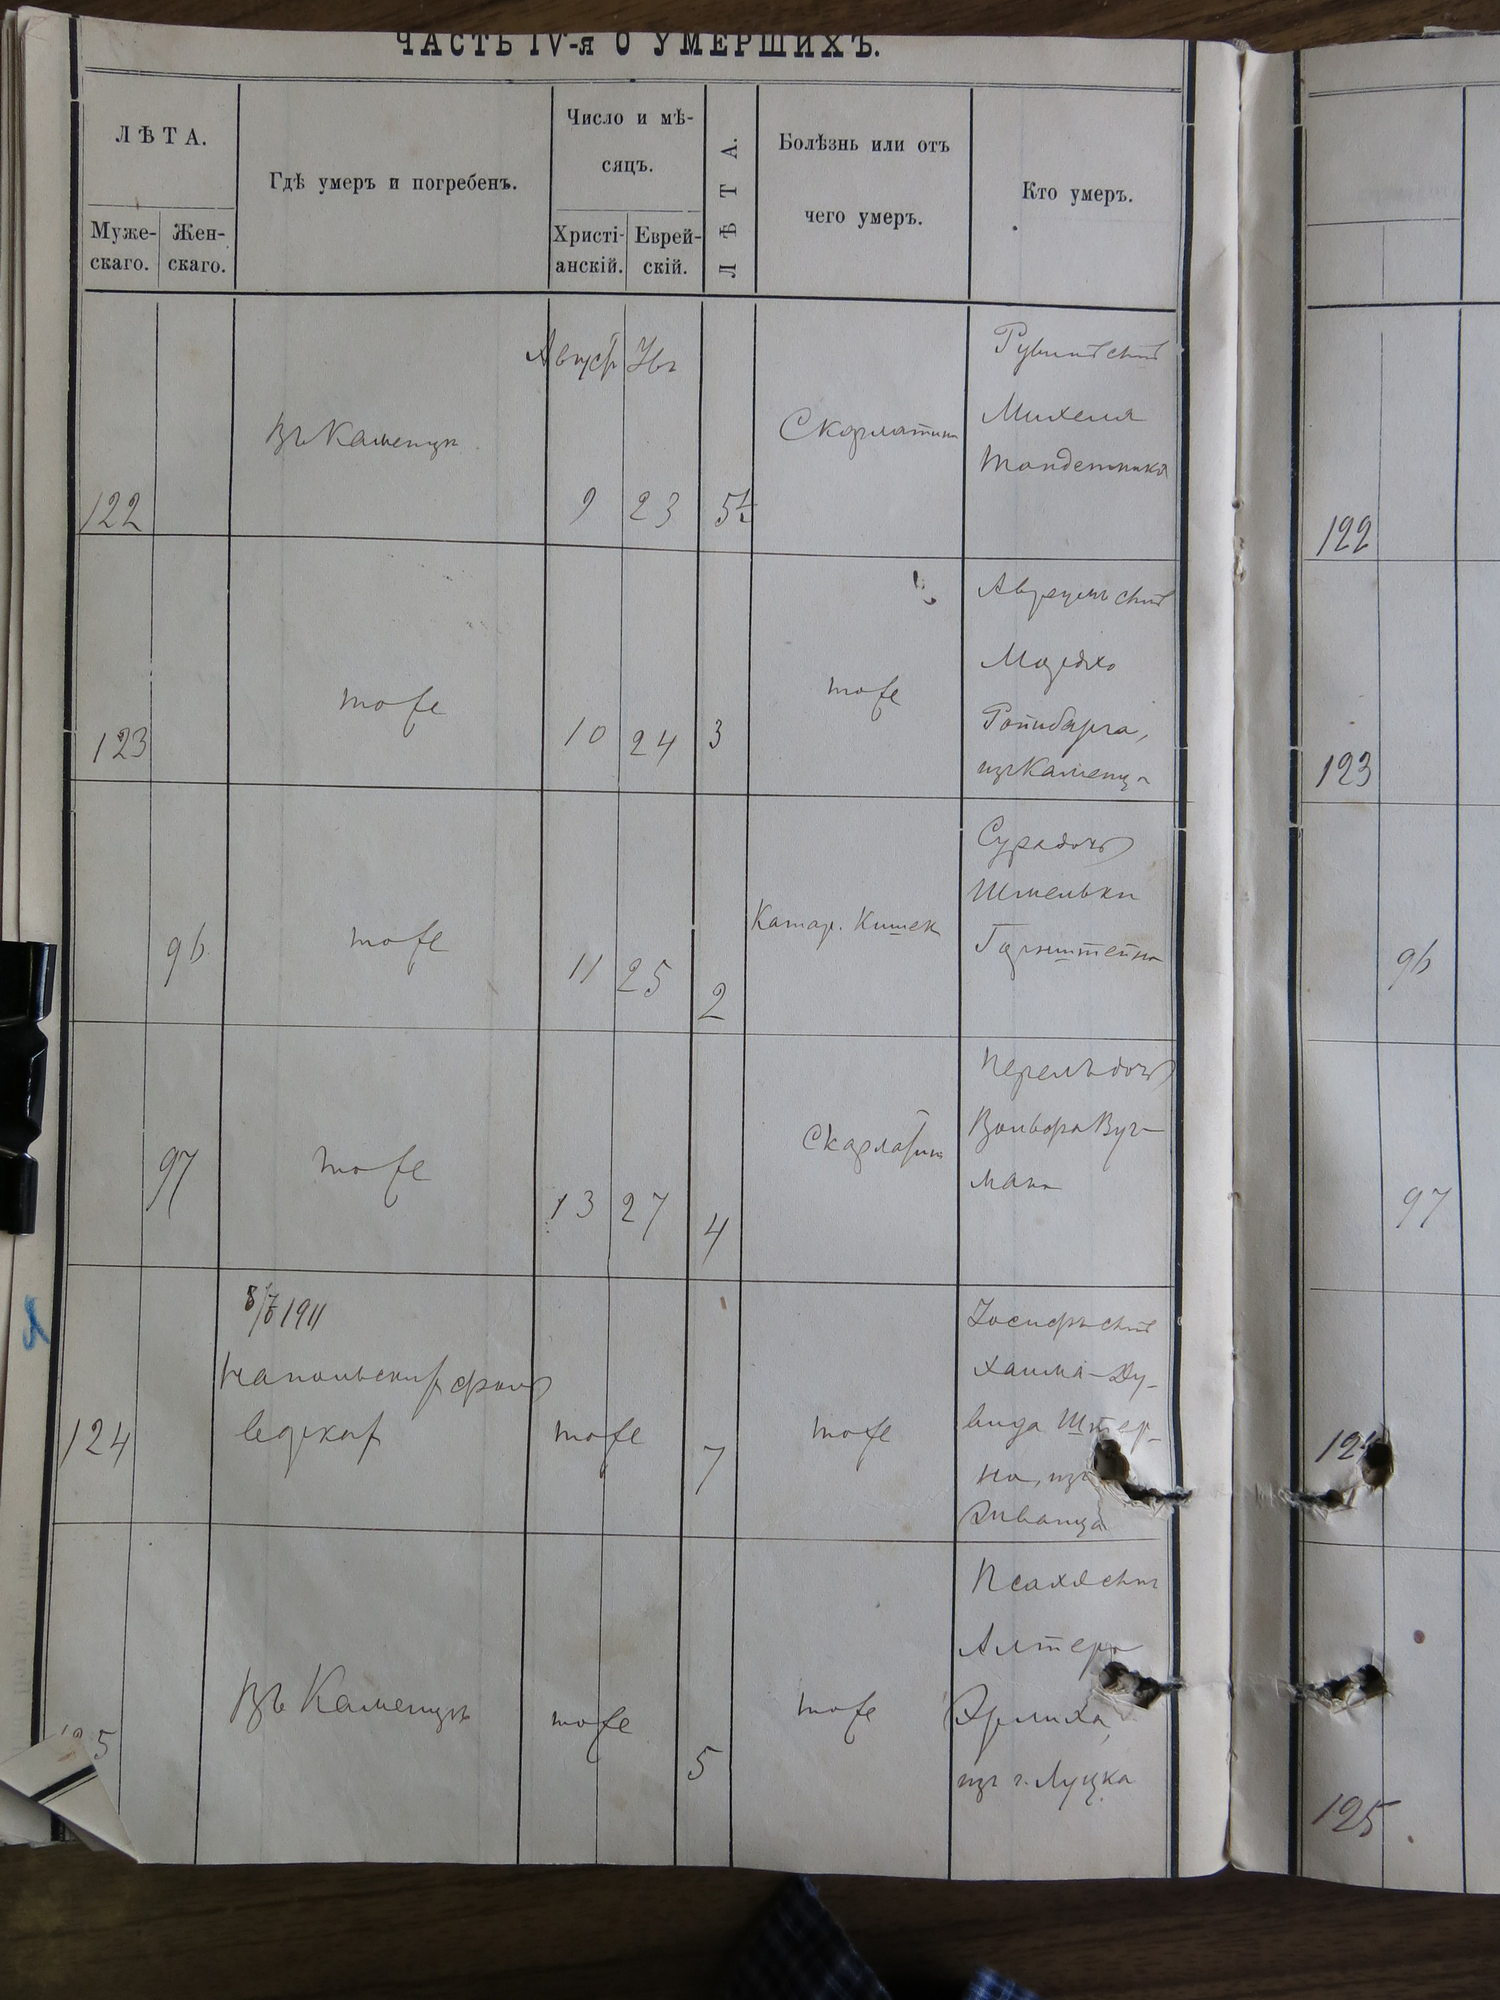 ЧАСТЬ IV-я О УМЕРШИХЪ.
ЛѢТА.
Муже-
скаго.
Жен-
скаго.
Гдѣ умеръ и погребенъ.
Число и мѣ-
сяцъ.
Христі-
анскій.
Еврей-
скій.
ЛѢТА.
Болѣзнь или отъ
чего умеръ.
Кто умеръ.
122
Въ Каменцѣ
Август
9
23
5½
Скарлатина
Рувинъ сынъ
Михеля
Тандетника
122
123
тоже
10
24
3
тоже
Аврумъ сынъ
Мордко
Ротбарга,
изъ Каменца
123
96
тоже
11
25
2
Катар. Кишек
Сура дочь
Шмельки
Горнштейна
96
97
тоже
13
27
4
Скарлатин
Перель дочь
Вольфа Вуг-
мана
97
124
1911
На польских
тоже
7
тоже
Іосифъ сынъ
Хаима-Ду-
вида Штер-
на, изъ
Жванца
12
5
Въ Каменцѣ
тоже
5
тоже
Псахя сынъ
Алтера
Эрлиха,
изъ г. Луцка
125